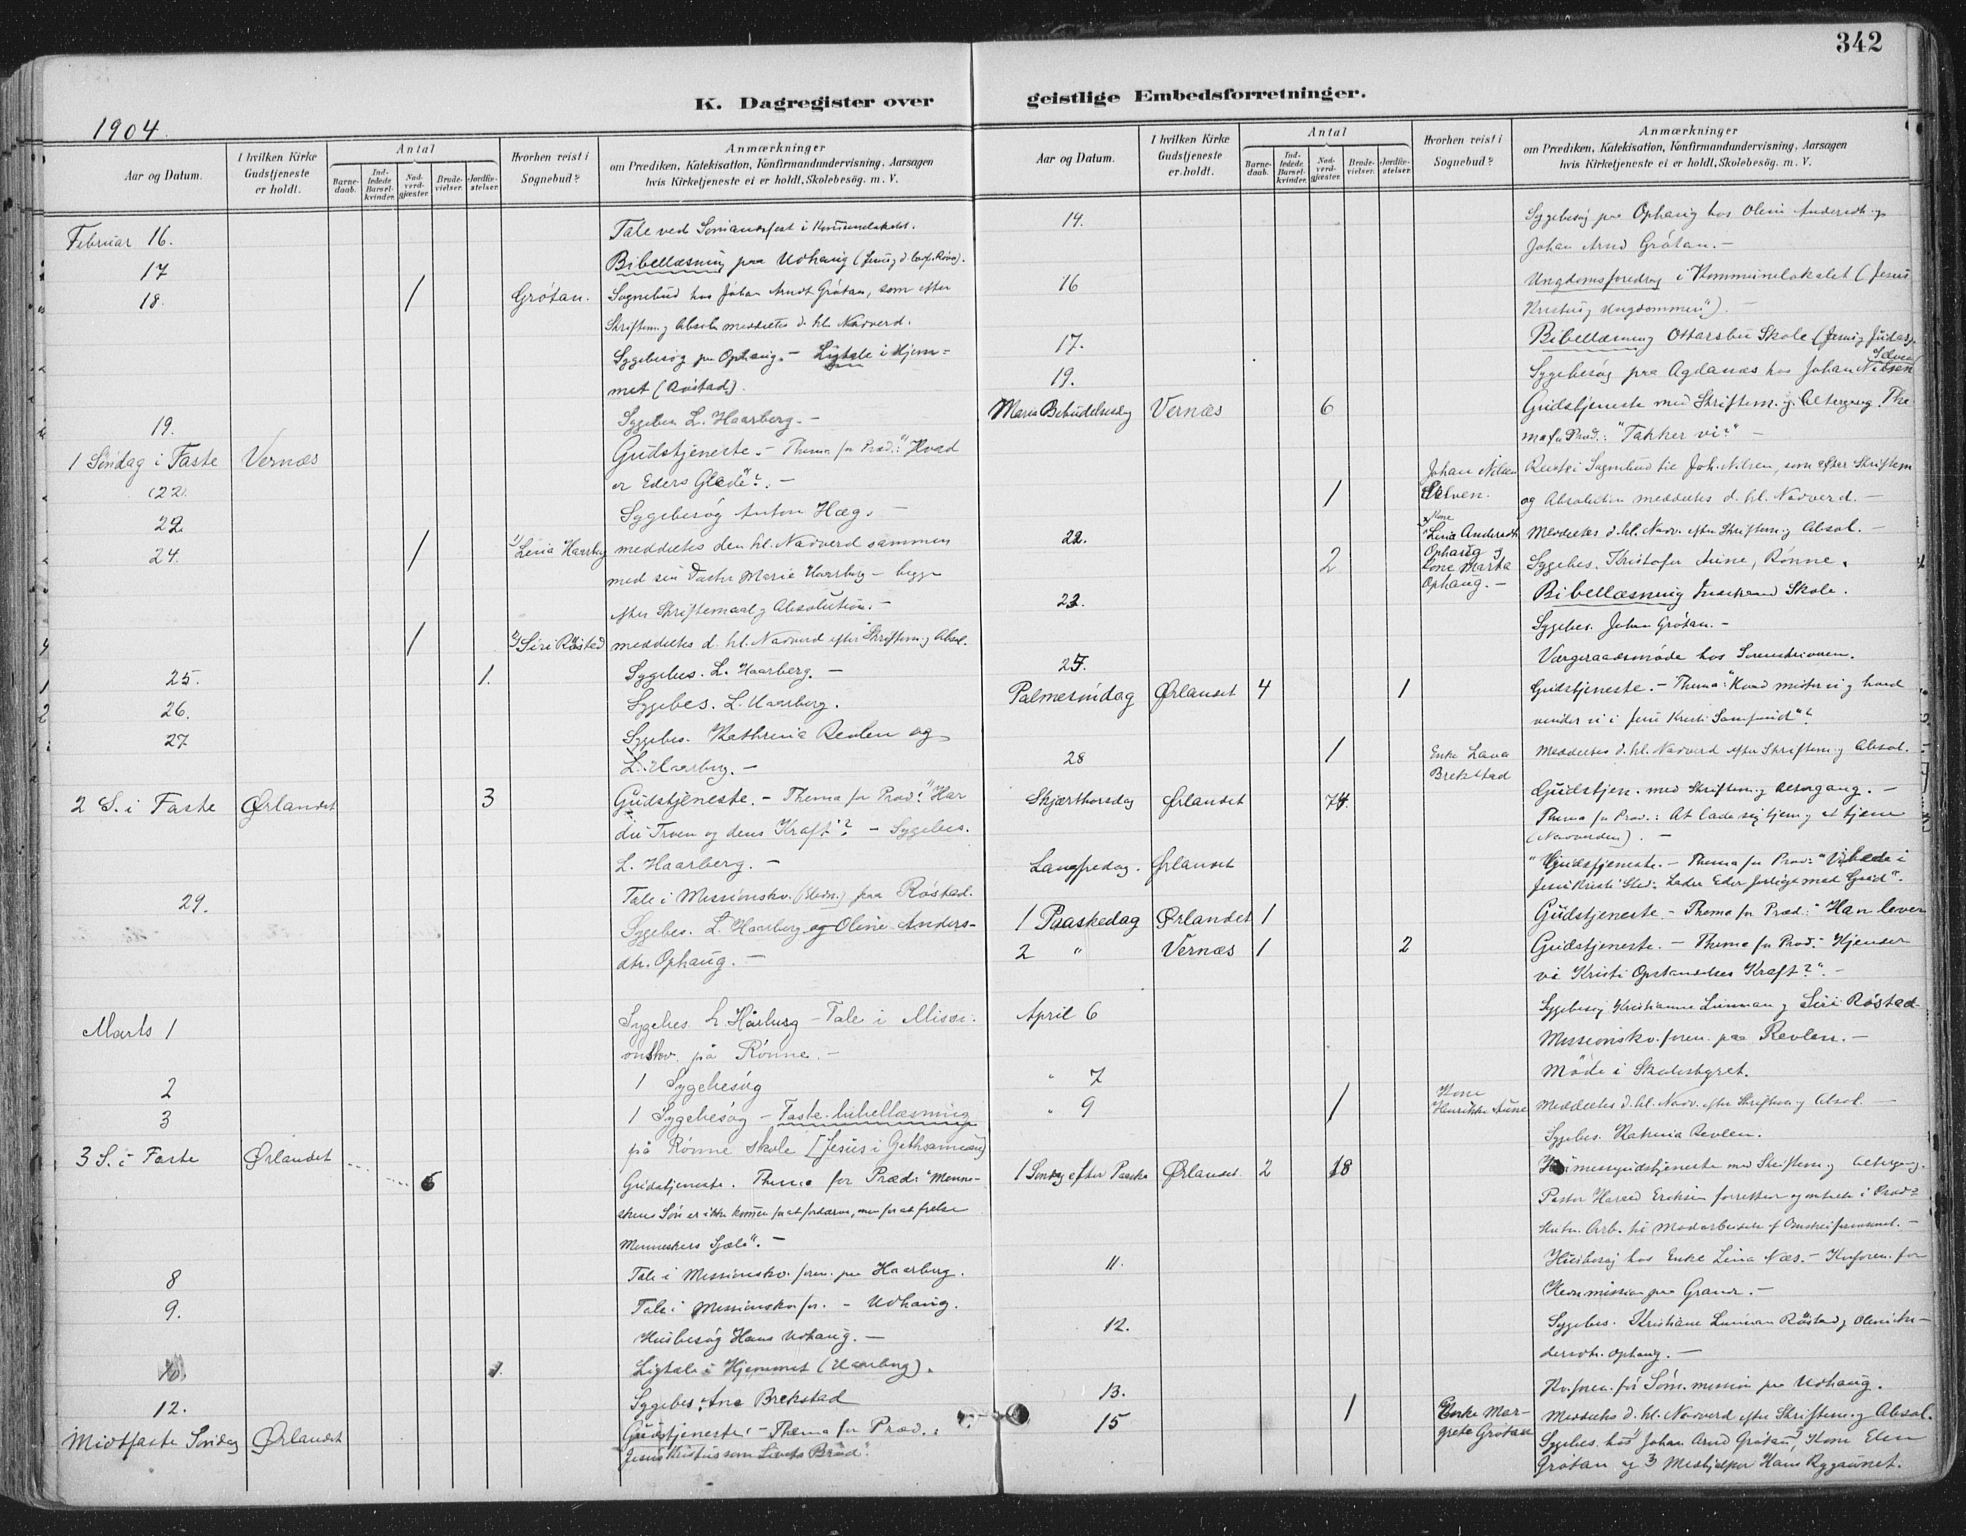 342
K. Dagregister over
geistlige Embedsforretninger.
1904
Aar og Datum.
I hvilken Kirke Gudstjeneste er holdt.
Antal
Barne-daab.
Ind-ledede Barsel-kvinder.
Nad-verd-gjæster.
Brude-vielser.
Jordfæ-stelser.
Hvorhen reist i Sognebud?
Anmærkninger
om Prædiken, Katekisation, Konfirmandundervisning, Aarsagen
hvis Kirketjeneste ei er holdt, Skolebesøg. m. V.
Februar 16.
Tale ved Sømandsfest i Kommunelokalet.
17
Bibellæsning paa Udhaug
18. 1 Grötan. Sognebud hos Johan Arndt Grötan, som efter
Skriftem. og Absol. meddeltes d. hl. Nadverd.
Sygebesøg paa Ophaug. – Ligtale i Hjem-
met (Röstad).
19. Sygebes. L. Haarberg. –
1 Søndag i Faste Vernæs Gudstjeneste. – Thema for Præd.: "Hvad
(22). er Eders Glæde"? –
22 Sygebesøg Anton Hæg. –
24. 1 Lina Haarberg meddeltes den hl. Nadverd sammen
med sin Datter Marie Haarberg – begge
efter Skriftemaal og Absolution. –
1 Siri Röstad meddeltes d. hl. Nadverd efter Skriftem. og Absol.
25. 1. Sygebes. L. Haarberg. –
26. Sygebes. L. Haarberg.
27. Sygebes. Kathrina Revlen og
L. Haarberg. –
2 S. i Faste Ørlandet 3 Gudstjeneste. – Thema for Præd.: "Har
du Troen og dens Kraft"? – Sygebes.
L. Haarberg. –
29. Tale i Missionskv. (Hedn.) paa Röstad.
Sygebes. L. Haarberg og Oline Anders-
dtr. Ophaug. –
Marts 1 Sygebes L. Hårberg – Tale i Missi-
onskv. på Rønne. –
2 1 Sygebesøg
3 1 Sygebesøg – Faste-bibellæsning
på Rønne skole [Jesus i Gethsemane]
3 S. i Faste Ørlandet 6 Gudstjeneste. Thema for Præd: "Menne-
skens Søn er ikke kommen for at fordærve, men for at frelse
Menneskers Sjæle". –
8 Tale i Missionskv. foren. paa Haarberg.
9. Tale i Missionskv. for. – Udhaug.
Husbesøg Hans Udhaug. –
10 1. Ligtale i Hjemmet (Haarberg).
12. Sygebes. Ane Brekstad
Midtfaste Søndag Ørlandet Gudstjeneste. – Thema for Præd.:
Jesus Kristus som Livets Brød".
Aar og Datum.
I hvilken Kirke Gudstjeneste er holdt.
Antal
Barne-daab.
Ind-ledede Barsel-kvinder.
Nad-verd-gjæster.
Brude-vielser.
Jordfæ-stelser.
Hvorhen reist i Sognebud?
Anmærkninger
om Prædiken, Katekisation, Konfirmandundervisning, Aarsagen
hvis Kirketjeneste ei er holdt, Skolebesøg. m. V.
14. Sygebesøg paa Ophaug hos Oline Andersdtr. og
Johan Arnd Grötan. –
16 Ungdomsforedrag i Kommunelokalet (Jesus
Kristus og Ungdommen"). –
17. Bibellæsning Ottersbu Skole (Jesus og Judas).
19. Sygebesøg paa Agdanæs hos Johan Nilsen Selven
Maria Bebudelsesdag Vernæs 6 Gudstjeneste med Skriftem. og Altergang. The
ma for Præd.: "Takker vi?" –
Johan Nilsen Reist i Sognebud til Joh. Nilsen, som efter Skriftem.
1 Selven. og Absolution meddeltes d. hl. Nadverd. –
22. Kone Lina Andersdtr. Meddeltes d. hl. Nadv. efter Skriftem. og Absol. –
2 Ophaug og Kone Marta Ophaug. – Sygebes. Kristofer Aune, Rønne.
23. Bibellæsning Skole.
Sygebes. Johan Grötan. –
25. Værgeraadsmøde hos Sorenskriveren.
Palmesöndag Ørlandet 4 1 Gudstjeneste. – Thema: "Hvad mister vi og hvad
vinder vi i Jesu Kristi Samfund"?
28 1 Enke Lava Brekstad Meddeltes d. hl. Nadverd efter Skriftem. og Absol.
Skjærthorsdag Ørlandet 74. Gudstjen. med Skriftem. og Altergang. –
Thema for Præd.: At lade sig tjene og at tjene
(Nadverden). –
Langfredag. Ørlandet Gudstjeneste. – Thema for Præd: "Vi bede i
Jesu Kristi Sted: Lader Eder forlige med Gud".
1 Paaskedag Ørlandet 1 Gudstjeneste – Thema for Præd.: "Han lever
2 " Vernæs 1 2 Gudstjeneste. – Thema for Præd.: Kjender
vi Kristi Opstandelses Kraft?". –
April 6 Sygebesøg Kristianne og Siri Röstad.
Missionskv. foren. paa Revlen. –
" 7 Møde i Skolestyret.
" 9 1 Kone Henrikke Aune Meddeltes d. hl. Nadv. efter Skriftem. og Absol. –
Sygebes. Katrina Revlen.
1 Sondag efter Paaske Ørlandet. 2 18 med Skriftem. og Altergang.
Pastor Harald Eriksen
11. Husbesøg hos Enke Lina Næs. – Kvforen. for
Hedn. mission paa Grande. –
12. Sygebes. Kristiane Röstad og Oline An-
dersdtr. Ophaug. –
13. Kv. foren. for Søm. mission paa Udhaug.
15 1 Enke Mar-
grete Grötan Meddeltes d. hl. Nadverd efter Skriftem. og Absol.
Sygebes. hos Johan Arnd Grötan, Kone Elen
Grötan og 3 Hans